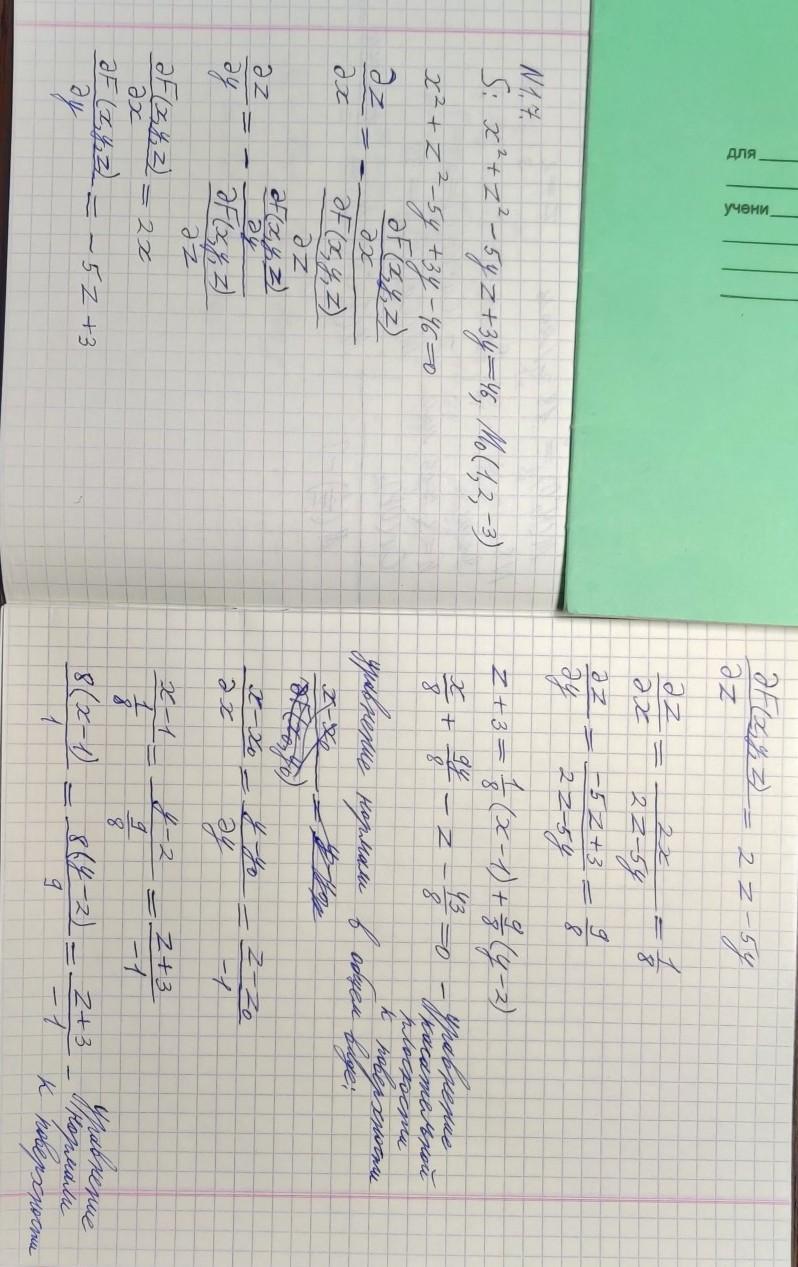 для
учени
N1.7.
S: x² + z² - 5yz + 3y = 46, M₀(1, 2, -3)
x² + z² - 5y + 3y - 46 = 0
∂z/∂x = - (∂F(x,y,z)/∂x)/(∂F(x,y,z)/∂z)
∂z/∂y = - (∂F(x,y,z)/∂y)/(∂F(x,y,z)/∂z)
∂F(x,y,z)/∂x = 2x
∂F(x,y,z)/∂y = -5z + 3
∂F(x,y,z)/∂z = 2z - 5y
∂z/∂x = 2x/(2z - 5y) = 1/8
∂z/∂y = (-5z + 3)/(2z - 5y) = 9/8
z + 3 = 1/8 (x - 1) + 9/8 (y - 2)
x/8 + 9y/8 - z - 43/8 = 0 - уравнение
касательной
плоскости
к поверхности
уравнение нормали в общем виде:
(x - x₀)/∂x = (y - y₀)/∂y = (z - z₀)/-1
(x - 1)/(1/8) = (y - 2)/(9/8) = (z + 3)/-1
8(x - 1)/1 = 8(y - 2)/9 = (z + 3)/-1 - уравнение
нормали
к поверхности